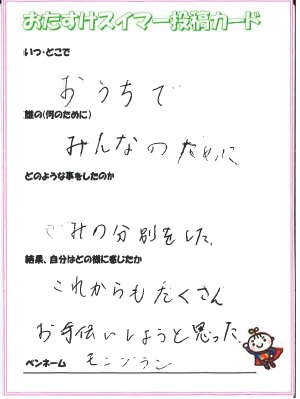 おたすけスイマー投稿カード
いつ・どこで
おうちで
誰の(何のために)
みんなのために
どのような事をしたのか
ごみの分別をした。
結果、自分はどの様に感じたか
これからもたくさん
お手伝いしようと思った。
ペンネーム モンブラン